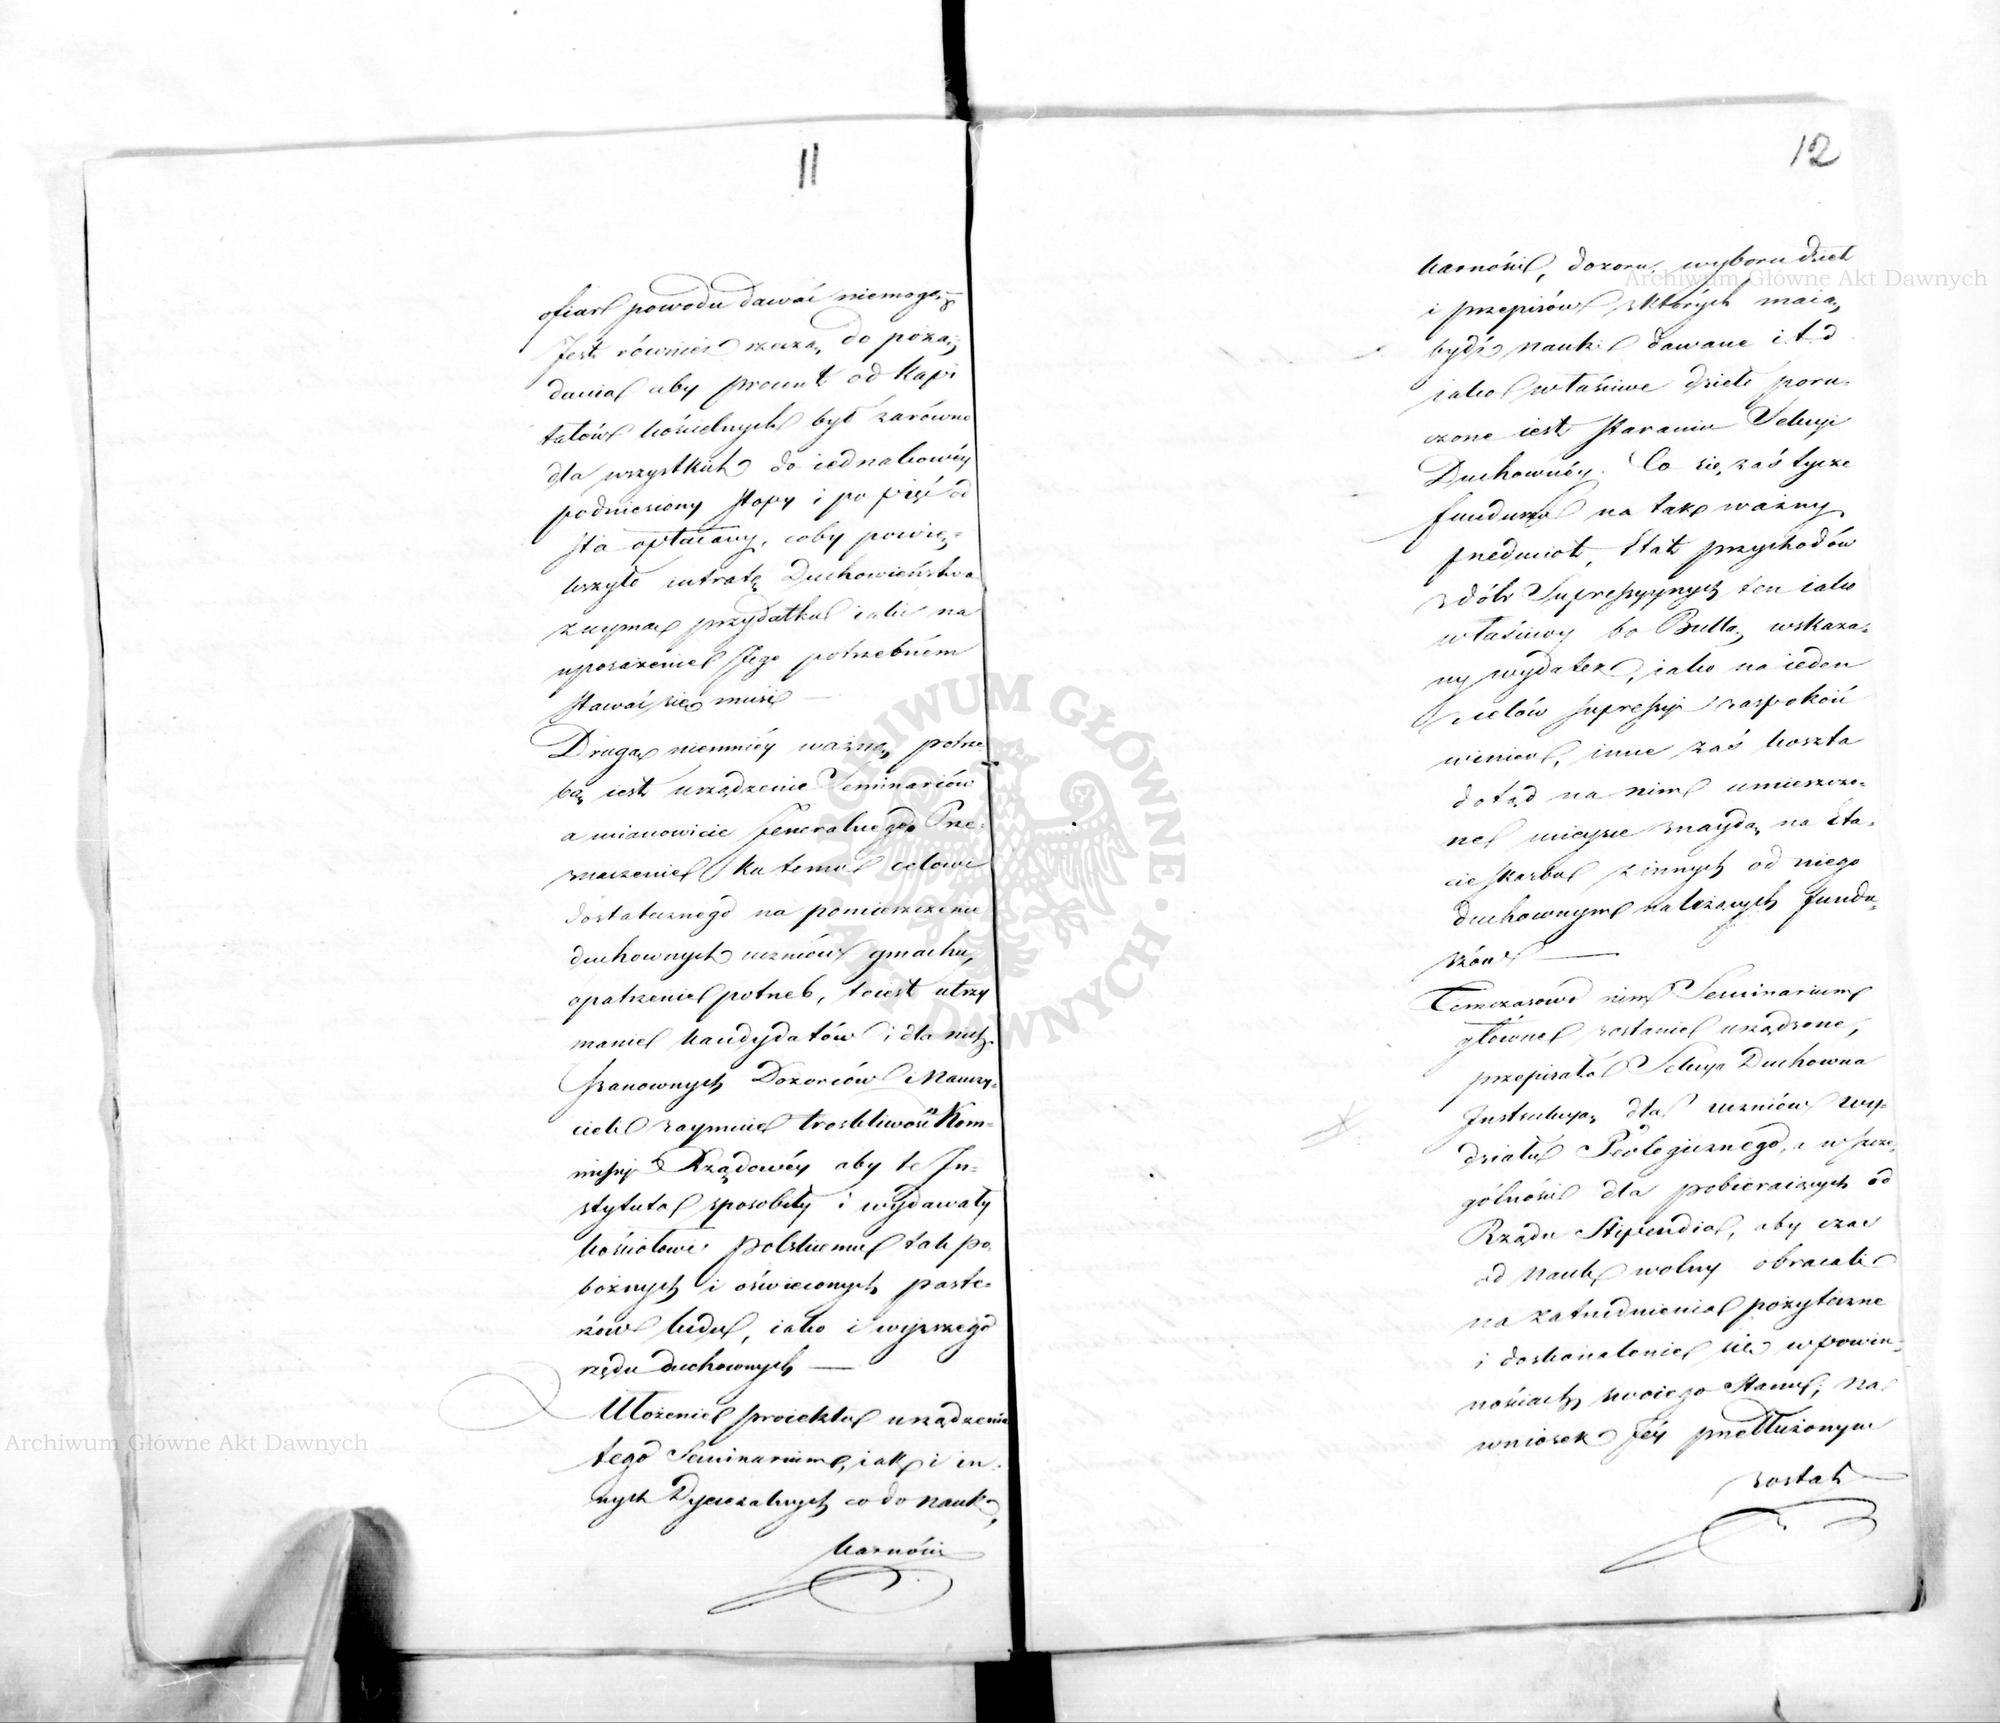 11
ofiar powodu dawać niemogą.
Jest również rzeczą do poża-
dania aby procent od Kapi
tałów kościelnych był zarówno
dla wszystkich do iednakowéy
podniesiony stopy i po pięć od
sta opłacany, coby powię-
kszyło intratę Duchowieństwa
przydatku iaki na
uposażenie Jego potrzebném
stawać się musi —
Druga niemniéy ważną potrze
bą iest urządzenie Seminariów
a mianowicie Jeneralnego Prze-
znaczenie ku temu celowi
dostatecznego na pomieszczenie
duchownych uczniów gmachu,
opatrzenie potrzeb, toiest utrzy
manie kandydatów i dla nich
szanownych Dozorców i Nauczy-
cieli zaymuie troskliwość Kom-
missyi Rządowéy aby te In-
stytuta sposobiły i wydawały
kościołowi polskiemu tak po-
bożnych i oświeconych paste-
rzów ludu, iako i wyższego
rzędu duchownych —
Ułożenie proiektu urządzenia
tego Seminarium, iak i in-
nych Dyecezalnych co do nauk,
karności
12
karności, dozoru, wyboru dzieł
i przepisów z których maią
bydź nauki dawane i.t.d
iako właściwe dzieło poru-
czone iest staraniu Sekcyi
Duchownéy. Co się zaś tycze
funduszu na tak ważny
przedmiot, Etat przychodów
z dóbr Suppressyinych ten iako
właściwy bo Bullą wskaza-
ny wydatek, iako na ieden
z celów supressyi zaspokoić
winien, inne zaś koszta
dotąd na nim umieszczo-
ne mieysce znaydą na Eta-
cie skarbu z innych od niego
duchownym należących fundu-
szów —
Temczasowo nim Seminarium
główne zostanie urządzone,
przepisała Sekcya Duchowna
Instrukcyą dla uczniów wy-
działu Teologicznego, a w szcze-
gólności dla pobieraiących od
Rządu Stipendia, aby czas
od nauk wolny obracali
na zatrudnienia pożyteczne
i doskonalenie się w powin-
nościach swoiego Stanu; na
wniosek Jéy przedłużonym
został
Archiwum Główne Akt Dawnych
Archiwum Główne Akt Dawnych
ARCHIWUM GŁÓWNE • AKT DAWNYCH •